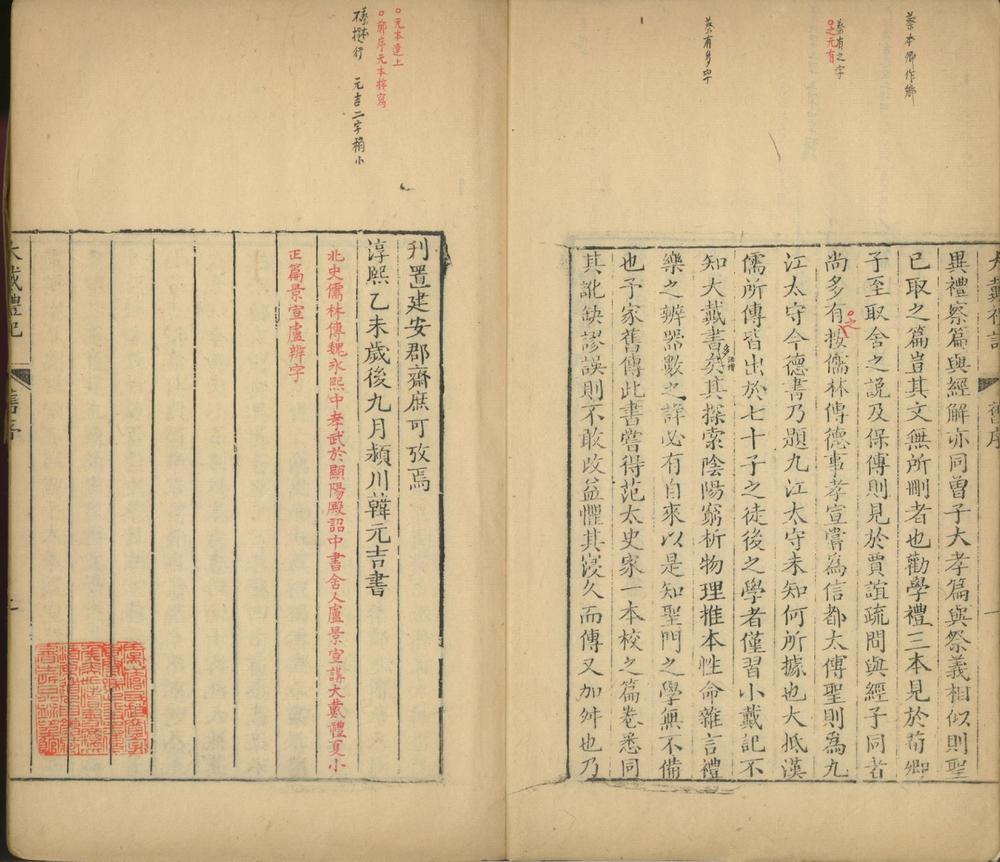 蔡本卿作鄉
蔡有之字
之元有
蔡有多字
大戴禮記
舊序
一
異禮察篇與經解亦同曾子大孝篇與祭義相似則聖
已取之篇豈其文無所刪者也勸學禮三本見於荀卿
子至取舍之說及保傅則見於賈誼疏間與經子同者
尚多有按儒林傳德事孝宣嘗為信都太傅聖則為九
之
江太守今德書乃題九江太守未知何所據也大抵漢
儒所傳皆出於七十子之徒後之學者僅習小戴記不
知大戴書矣其探索陰陽窮析物理推本性命雜言禮
多
樂之辨器數之詳必有自來以是知聖門之學無不備
也予家舊傳此書嘗得范太史家一本校之篇卷悉同
其訛缺謬誤則不敢改益懼其寖久而傳又加舛也乃
元本連上
鄭序元本接寫
元吉二字稍小
刊置建安郡齋庶可攷焉
淳熙乙未歲後九月潁川韓元吉書
北史儒林傳魏永熙中孝武於顯陽殿詔中書舍人盧景宣講大戴禮夏小
正篇景宣盧辨字
大戴禮記
舊序